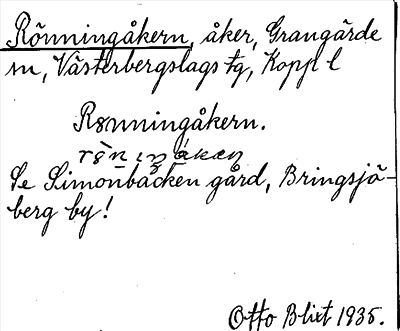 Rönningåkern, åker, Grangärde
sn, Västerbergslags tg, Koppl l
Rønningåkern.
Se Simonbacken gård, Bringsjö-
berg by!
Otto Blixt 1935.